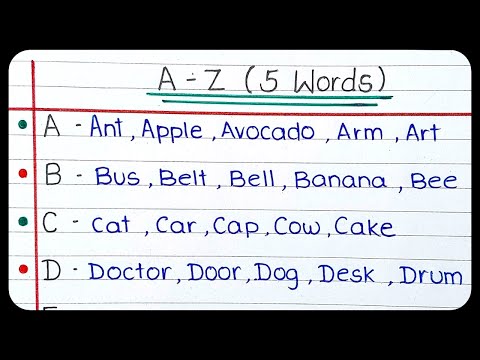 A - Z ( 5 Words)
A - Ant, Apple, Avocado, Arm, Art
B - Bus, Belt, Bell, Banana, Bee
C - Cat, Car, Cap, Cow, Cake
D - Doctor, Door, Dog, Desk, Drum